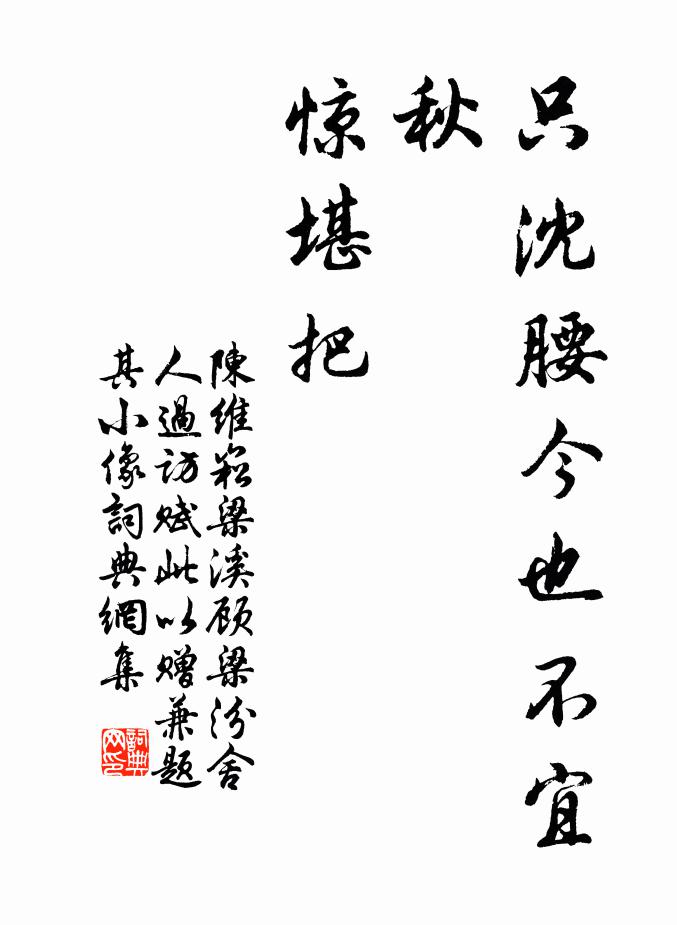 只沈腰今也不宜
秋
惊堪把
陳维崧梁溪顾梁汾舍
人過访赋此以赠兼题
其小像詞典網集
詞典
网印